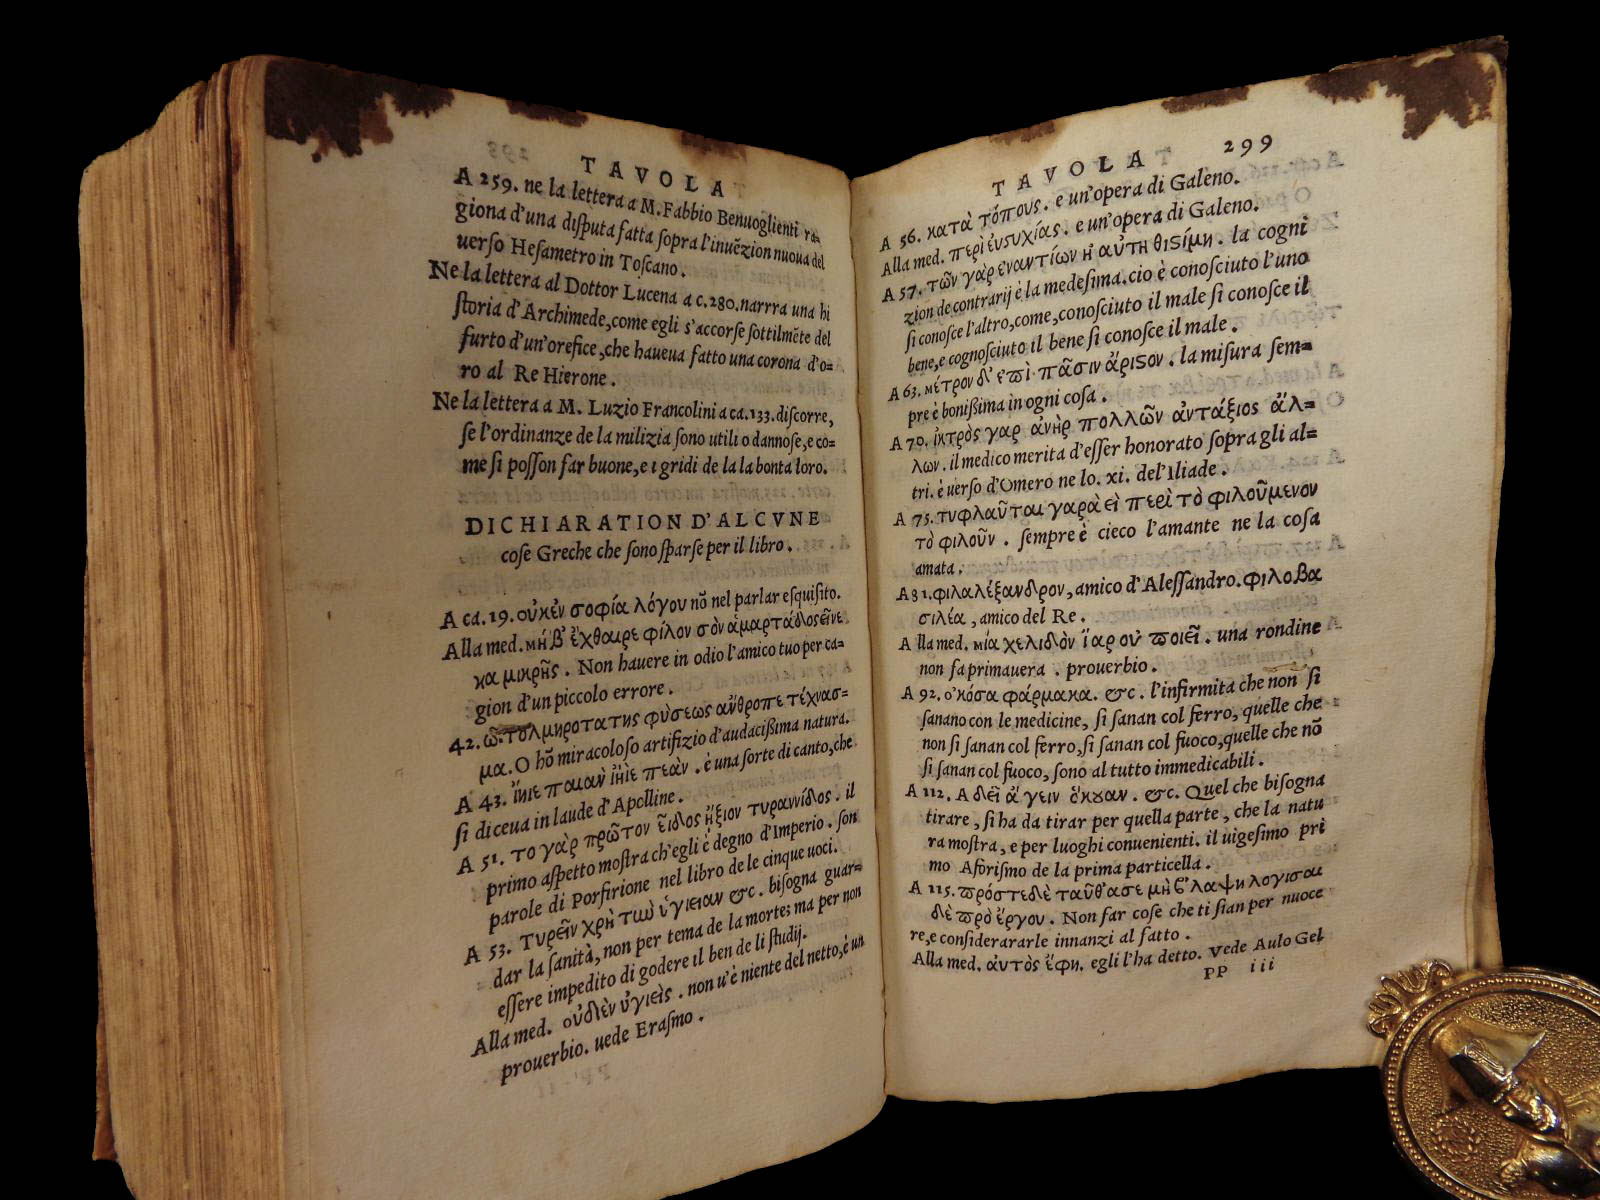 TAVOLA
A 259. ne la lettera a M. Fabbio Benuoglienti ra=
giona d'una diſputa fatta ſopra l'inuēzion nuoua del
uerſo Heſametro in Toſcano.
Ne la lettera al Dottor Lucena a c. 280. narrra una hi
ſtoria d'Archimede, come egli s'accorſe ſottilmēte del
furto d'un'orefice, che haueua fatto una corona d'o=
ro al Re Hierone.
Ne la lettera a M. Luzio Francolini a ca. 133. diſcorre,
ſe l'ordinanze de la milizia ſono utili o dannoſe, e co=
me ſi poſſon far buone, e i gridi de la la bonta loro.
DICHIARATION D'ALCVNE
coſe Greche che ſono ſparſe per il libro.
A ca. 19. οὐκἐν σοφία λόγου nō nel parlar eſquiſito.
Alla med. μή β' ἔχθαιρε φίλον σὸν ἁμαρτάδος εἵνε
κα μικρῆς. Non hauere in odio l'amico tuo per ca=
gion d'un piccolo errore.
42. ὦ τολμηροτατης φύσεως ἄνθροπε τέχνασ=
μα. O hō miracoloſo artifizio d'audaciſſima natura.
A 43. ἵηιε παιαν ἰήιε πεὰν. è una ſorte di canto, che
ſi diceua in laude d'Apolline.
A 51. το γὰρ πρῶτον εἶδος ἤξιον τυραννίδος. il
primo aſpetto moſtra ch'egli è degno d'Imperio. ſon
parole di Porfirione nel libro de le cinque uoci.
A 53. Τυρεῖν χρὴ τὼ ὑγιειαν &c. biſogna guar=
dar la ſanità, non per tema de la morte; ma per non
eſſere impedito di godere il ben de li ſtudij.
Alla med. οὐδὲν ὑγιεὶς. non u'è niente del netto, è un
prouerbio. uede Eraſmo.
TAVOLA 299
A 56. κατὰ τόπους. e un'opera di Galeno.
Alla med. περὶ ἐυϛυχίας. e un'opera di Galeno.
A 57. τῶν γὰρ ἐναντίων ἡ αὐτη ϑιϛίμη. la cogni
zion de contrarij è la medeſima. cio è conoſciuto l'uno
ſi conoſce l'altro, come, conoſciuto il male ſi conoſce il
bene, e cognoſciuto il bene ſi conoſce il male.
A 63. μέτρον δ' ἐπὶ πᾶσιν ἄριϛον. la miſura ſem=
pre è boniſſima in ogni coſa.
A 70. ἰητρὸς γαρ ἀνὴρ πολλῶν ἀντάξιος ἄλ=
λων. il medico merita d'eſſer honorato ſopra gli al=
tri. è uerſo d'Omero ne lo. xi. del'Iliade.
A 75. τυφλαῦται γαρὰ εὶ περὶ τὸ φιλοῦμενον
τὸ φιλοῦν. ſempre è cieco l'amante ne la coſa
amata.
A 81. φιλαλέξανδρον, amico d'Aleſſandro. φιλοβα
σιλέα, amico del Re.
A lla med. μία χελιδὸν ἴαρ οὐ ποιεῖ. una rondine
non fa primauera. prouerbio.
A 92. ὁκόσα φάρμακα. &c. l'infirmita che non ſi
ſanano con le medicine, ſi ſanan col ferro, quelle che
non ſi ſanan col ferro, ſi ſanan col fuoco, quelle che nō
ſi ſanan col fuoco, ſono al tutto immedicabili.
A 112. Α δεῖ ἄγειν ὅκȣαν. &c. Quel che biſogna
tirare, ſi ha da tirar per quella parte, che la natu
ra moſtra, e per luoghi conuenienti. il uigeſimo pri
mo Aforiſmo de la prima particella.
A 115. πρόστεδὲ ταῦθ'ασε μὴ βλαψη λογισαι
δὲ πρὸ ἔργου. Non far coſe che ti ſian per nuoce
re, e conſiderararle innanzi al fatto.
Alla med. αυτὸς ἔφη. egli l'ha detto. Vede Aulo Gel
PP iii